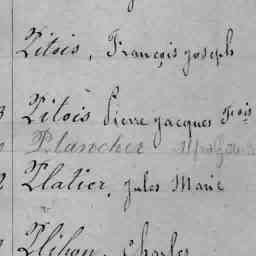 Pitois, François Joseph
Pitois Pierre Jacques Fcois
Plancher
Platier, Jules Marie
Plihon, Charles